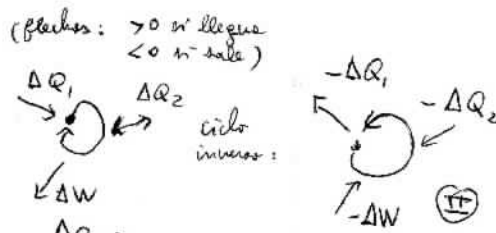 (flechas: >0 si llegue
<0 si sale)
ΔQ₁
ΔQ₂
ΔW
ciclo
inverso:
-ΔQ₁
-ΔQ₂
-ΔW
II